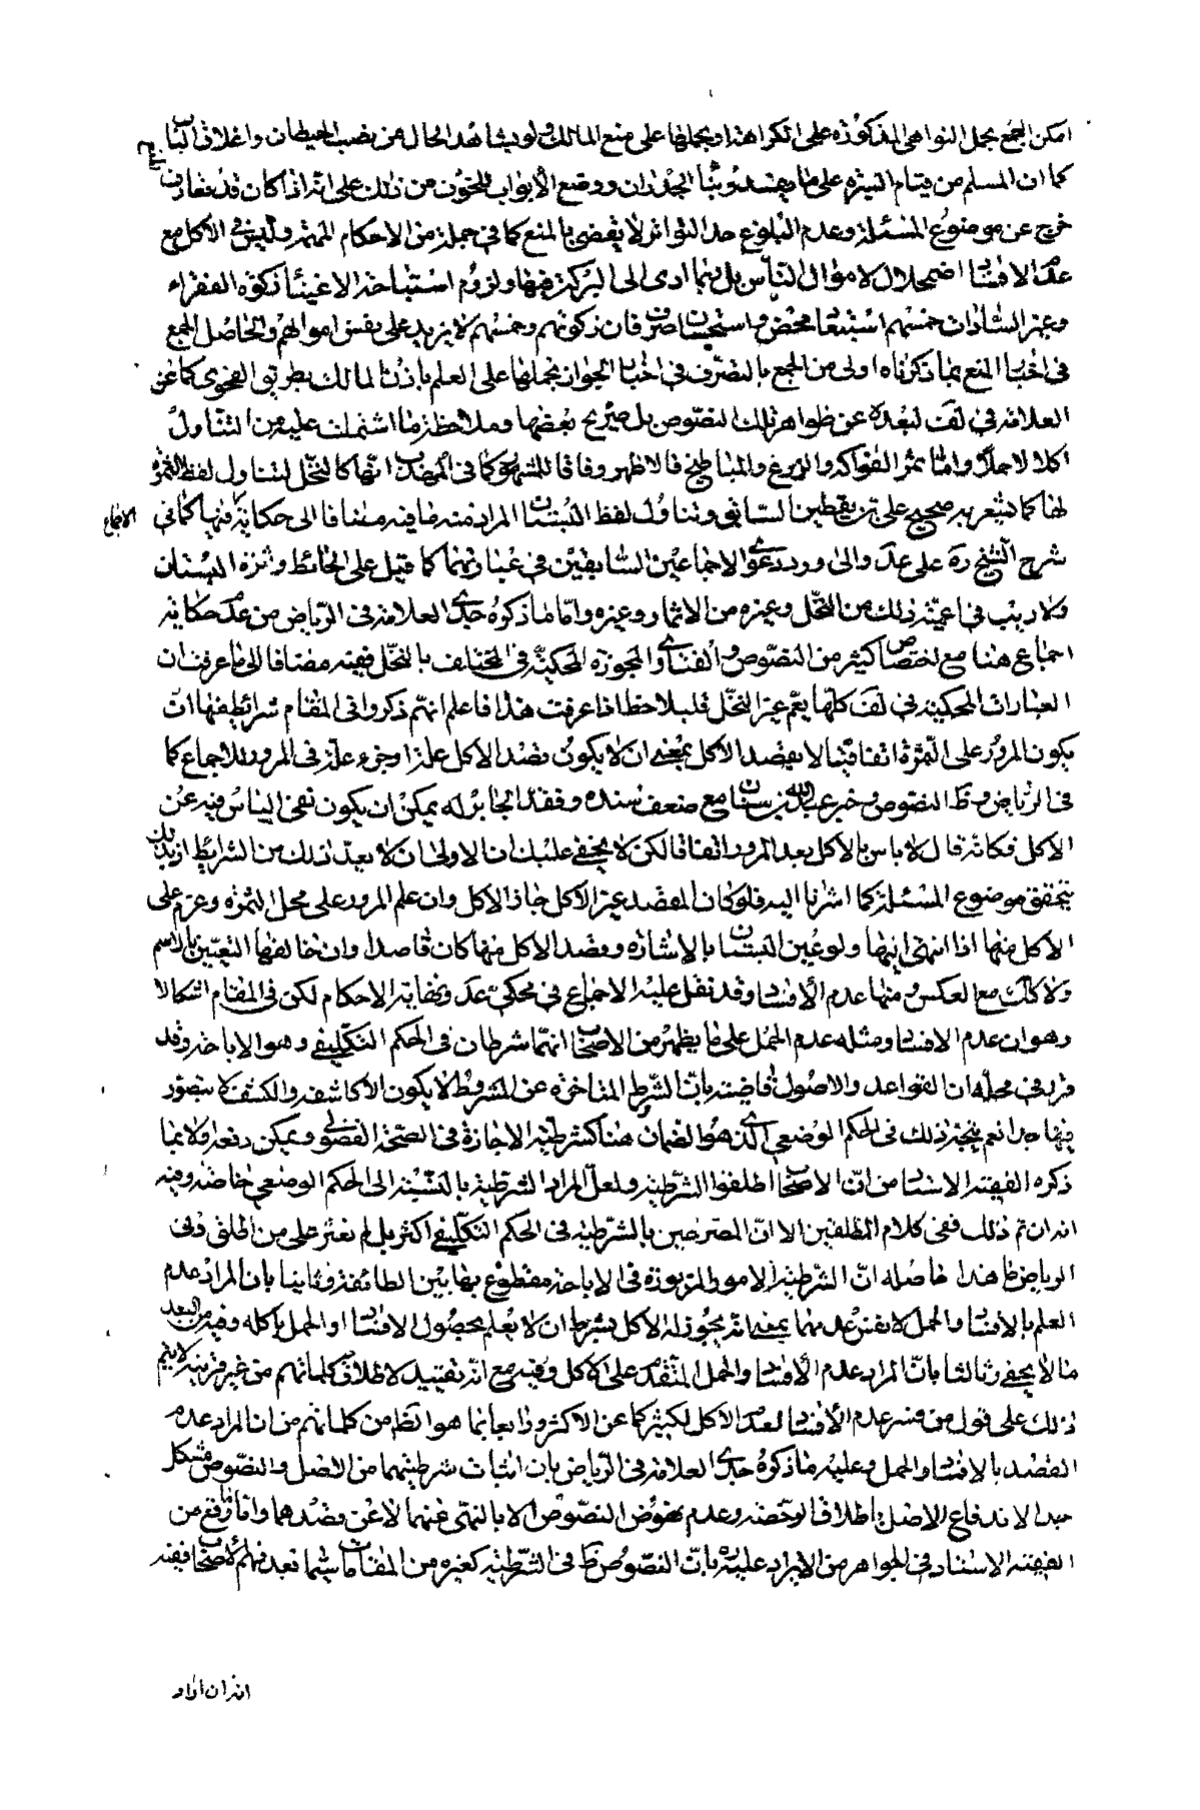 امكن الجمع بحمل النواهى المذكورة على الكراهة او بحملها على منع المالك ولو بشاهد الحال من نصب الحيطان واغلاق الباب
كما ان المسلم من قيام السيرة على ما بناء الجدران ووضع الأبواب من ذلك على انه اذا كان قد تعارف
خرج عن موضوع المسئلة وعدم البلوغ حد التواتر لا يقضى بالمنع كما فى جملة من الاحكام وليس فى الأكل مع
عدم الافساد اضمحلال لاموال الناس بل ربما ادى الى البركة فيها ولزوم استباحة الاغنياء زكوة الفقراء
وغير السادات خمسهم استبعاد محض واستحسان صرف فان زكوتهم وخمسهم لا يزيد على نفس اموالهم والحاصل الجمع
فى اخبار المنع بما ذكرناه اولى من الجمع بالتصرف فى اخبار الجواز بحملها على العلم باذن المالك بطريق الفحوى كما عن
العلامة فى لف لبعده عن ظواهر تلك النصوص بل صريح بعضها وملاحظة ما اشتملت عليه من التناول
اكلا لا حملا واما ثمر الفواكه والزرع والمباطخ فالاظهر وفاقا للمشهور كما فى المهذب انها كالنخل لتناول لفظ الثمرة
لها كما يشعر به صحيح على بن يقطين السابق وتناول لفظ البستان المراد منه ما فيه مضافا الى حكاية فيها كما فى الاجماع
شرح الشيخ ره على عد والى ورود دعوى الاجماعين السابقين فى عبارتهما كما قيل على الحائط وثمرة البستان
ولا ريب فى اعمية ذلك من النخل وغيره من الاثمار وغيره واما ما ذكره جدى العلامة فى الرياض من عدم حكاية
اجماع هنا مع اختصاص كثير من النصوص والفتاوى المجوزة المحكية فى المختلف بالنخل ففيه مضافا الى ما عرفت ان
العبارات المحكية فى لف كلها يعم غير النخل فليلاحظ اذا عرفت هذا فاعلم انهم ذكروا فى المقام شرائط فمنها ان
يكون المرور على الثمرة اتفاقيا لا بقصد الاكل بمعنى ان لا يكون قصد الاكل علة او جزء علة فى المرور للاجماع كما
فى الرياض وظ النصوص وخبر عبد الله بن سنان مع ضعف سنده وفقد الجابر له يمكن ان يكون نفى الباس فيه عن
الاكل فكانه قال لا باس بالاكل بعد المرور اتفاقا لكن لا يخفى عليك ان الاولى ان لا يعد ذلك من الشرائط اذ بذلك
يتحقق موضوع المسئلة كما اشرنا اليه فلو كان المقصد غير الأكل جاز الاكل وان علم المرور على محل الثمرة وعزم على
الأكل منها اذا انتهى اليها ولو عين البستان بالاشارة وقصد الاكل منها كان قاصدا وان خالفها التعيين بالاسم
ولا كك مع العكس ومنها عدم الأفساد وقد نقل عليه الاجماع فى محكى عد ونهاية الاحكام لكن فى المقام اشكالا
وهو ان عدم الافساد ومثله عدم الحمل على ما يظهر من الاصحاب انهما شرطان فى الحكم التكليفى وهو الاباحة وقد
قرر فى محله ان القواعد والاصول قاضية بان الشرط المتاخرة عن المشروط لا يكون الا كاشفة والكشف لا يتصور
فيها جدا نعم يتجه ذلك فى الحكم الوضعى الذى هو الضمان هنا كشرطية الاجازة فى الصحة الفضولى ويمكن دفعه اولا بما
ذكره الفقيه الاستاد من ان الاصحاب اطلقوا الشرطية ولعل المراد الشرطية بالنسبة الى الحكم الوضعى خاصة وفيه
انه ان تم ذلك ففى كلام المطلقين الا ان المصرحين بالشرطية فى الحكم التكليفى اكثر بل لم نعثر على من اطلق وفى
الرياض ما هذا حاصله ان الشرطية الامور المزبورة فى الاباحة مقطوع بها بين الطائفة وثانيا بان المراد عدم
العلم بالافساد والحمل لا نفس عدمهما بمعنى انه يجوز له الأكل بشرط ان لا يعلم بحصول الافساد او الحمل باكله وفيه من البعد
ما لا يخفى وثالثا بان المراد عدم الأفساد والحمل المتقدم على الاكل وفيه مع انه تقييد لاطلاق كلماتهم من غير قرينة لا يتم
ذلك على قول من فسر عدم الأفساد بعدم الاكل لكثير كما عن الاكثر ورابعا بما هو الظ من كلماتهم من ان المراد عدم
القصد بالافساد والحمل وعليه ما ذكره جدى العلامة فى الرياض بان اثبات شرطيتهما من الاصل والنصوص مشكل
جدا لاندفاع الاصل باطلاق الرخصة وعدم نهوض النصوص الا بالنهى عنهما لا عن قصدهما واما ما وقع من
الفقيه الاستاد فى الجواهر من الايراد عليه بان النصوص ظ فى الشرطية كغيره من المقامات سيما بعد فهم الاصحاب ففيه
انه ان اراد